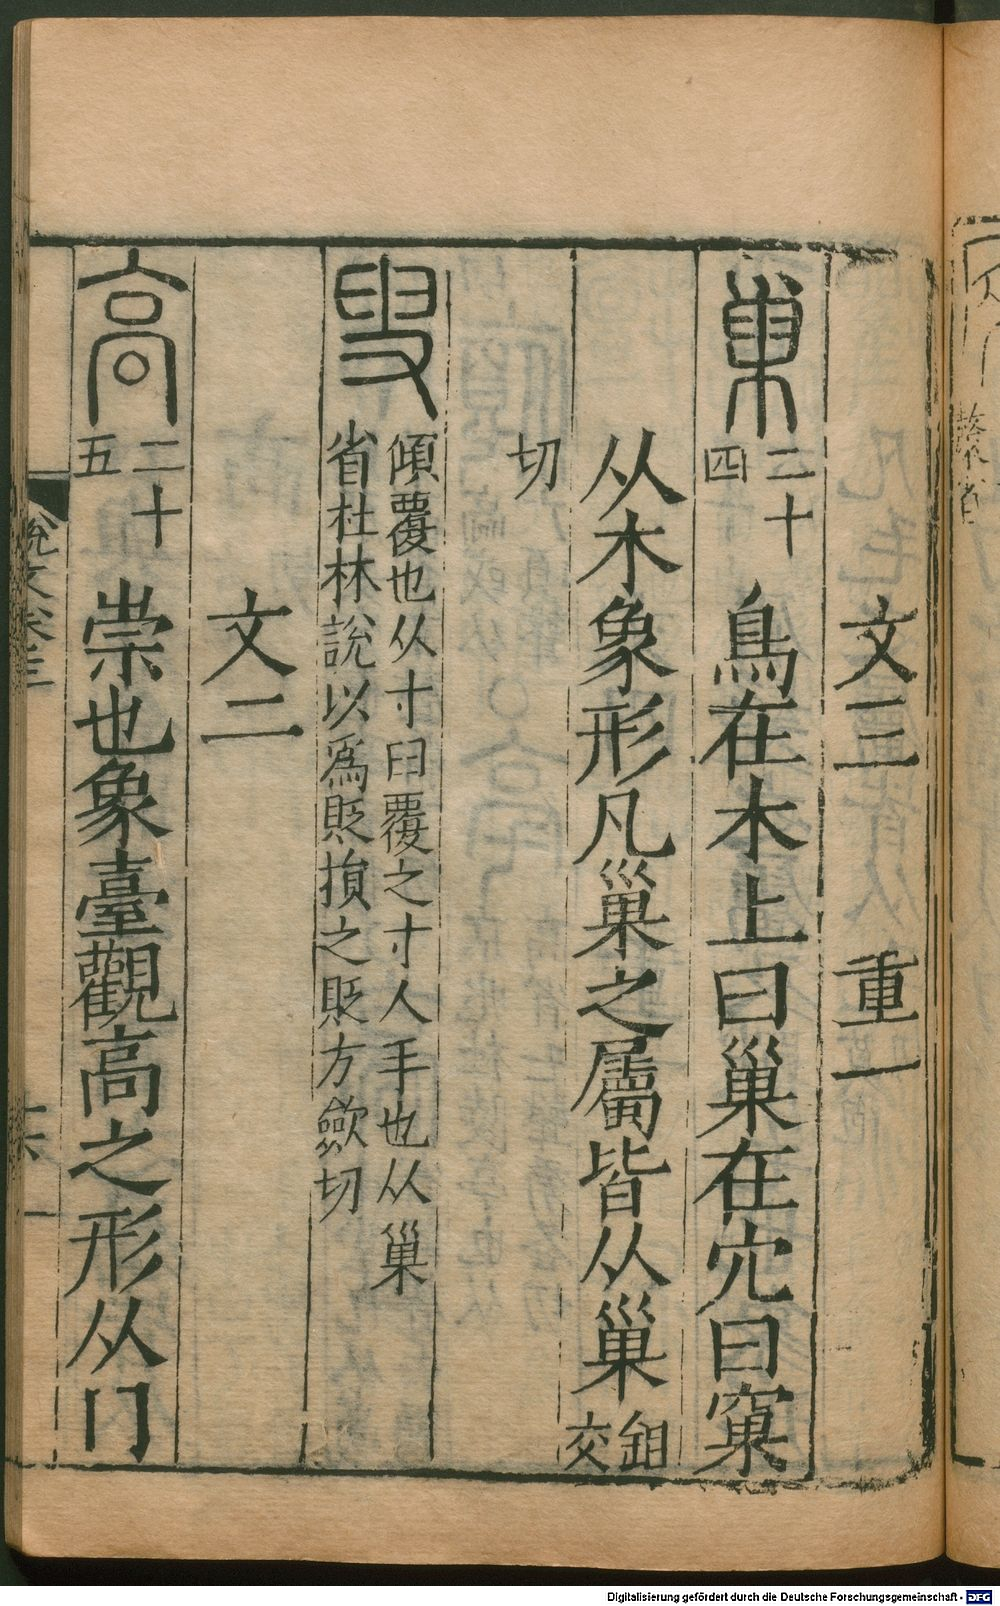 文三　重一
巢 二十四 鳥在木上曰巢在穴曰窠
从木象形凡巢之屬皆从巢 鉏交
切
𠭥 傾覆也从寸臼覆之寸人手也从巢
省杜林說以爲貶損之貶方斂切
文二
高 二十五 崇也象臺觀高之形从冂
說文卷三
Digitalisierung gefördert durch die Deutsche Forschungsgemeinschaft - DFG